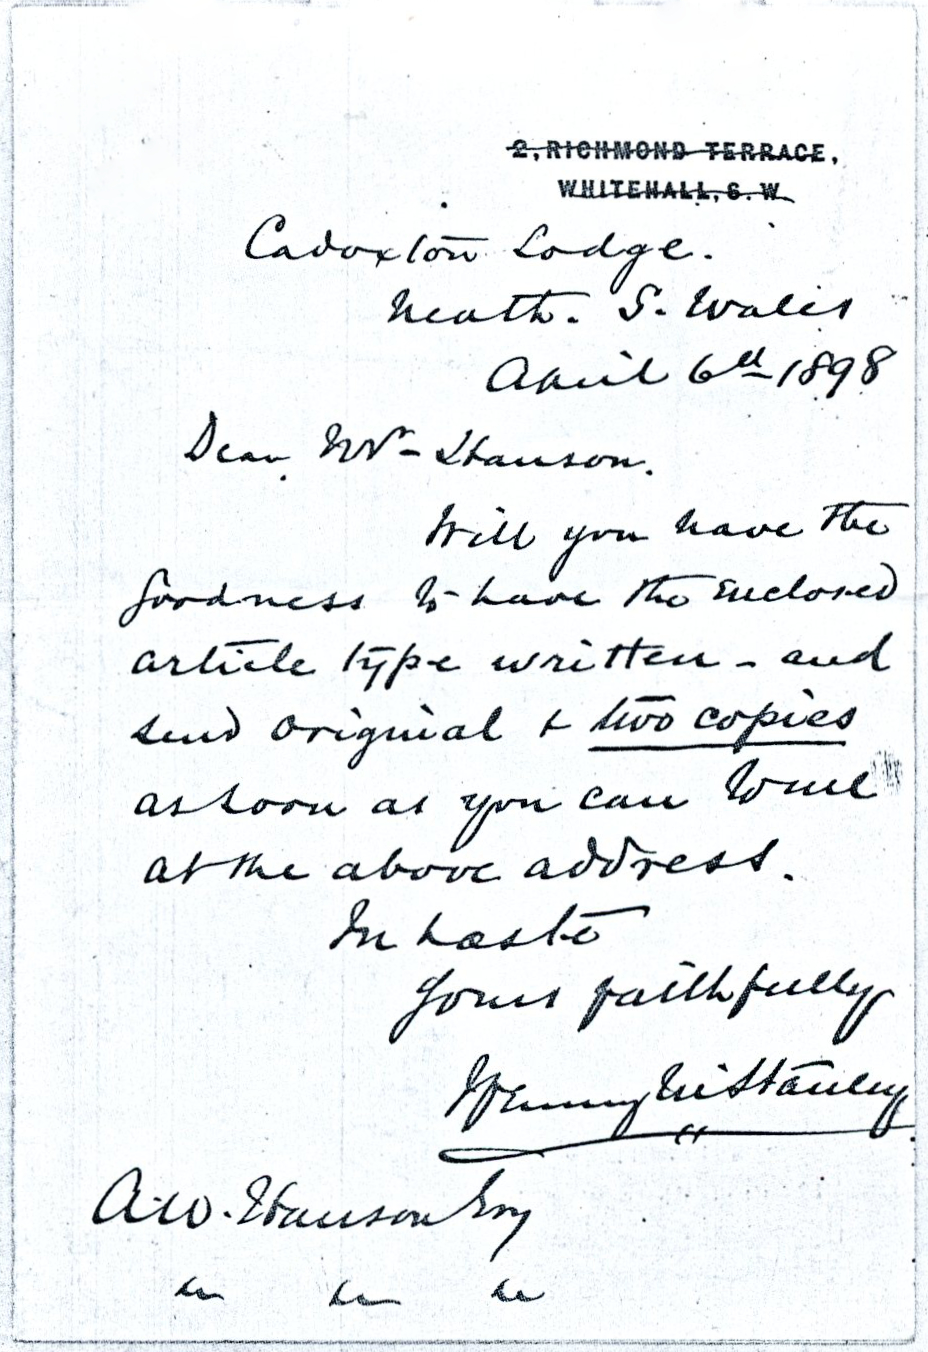 2, RICHMOND TERRACE,
WHITEHALL, S. W.
Cadoxton Lodge.
Neath. S. Wales
April 6th 1898
Dear Mr - Hanson.
Will you have the
goodness to have the enclosed
article type written - and
send original & two copies
as soon as you can to me
at the above address.
In haste
Yours faithfully
Henry M Stanley
A. W. Hanson Esq